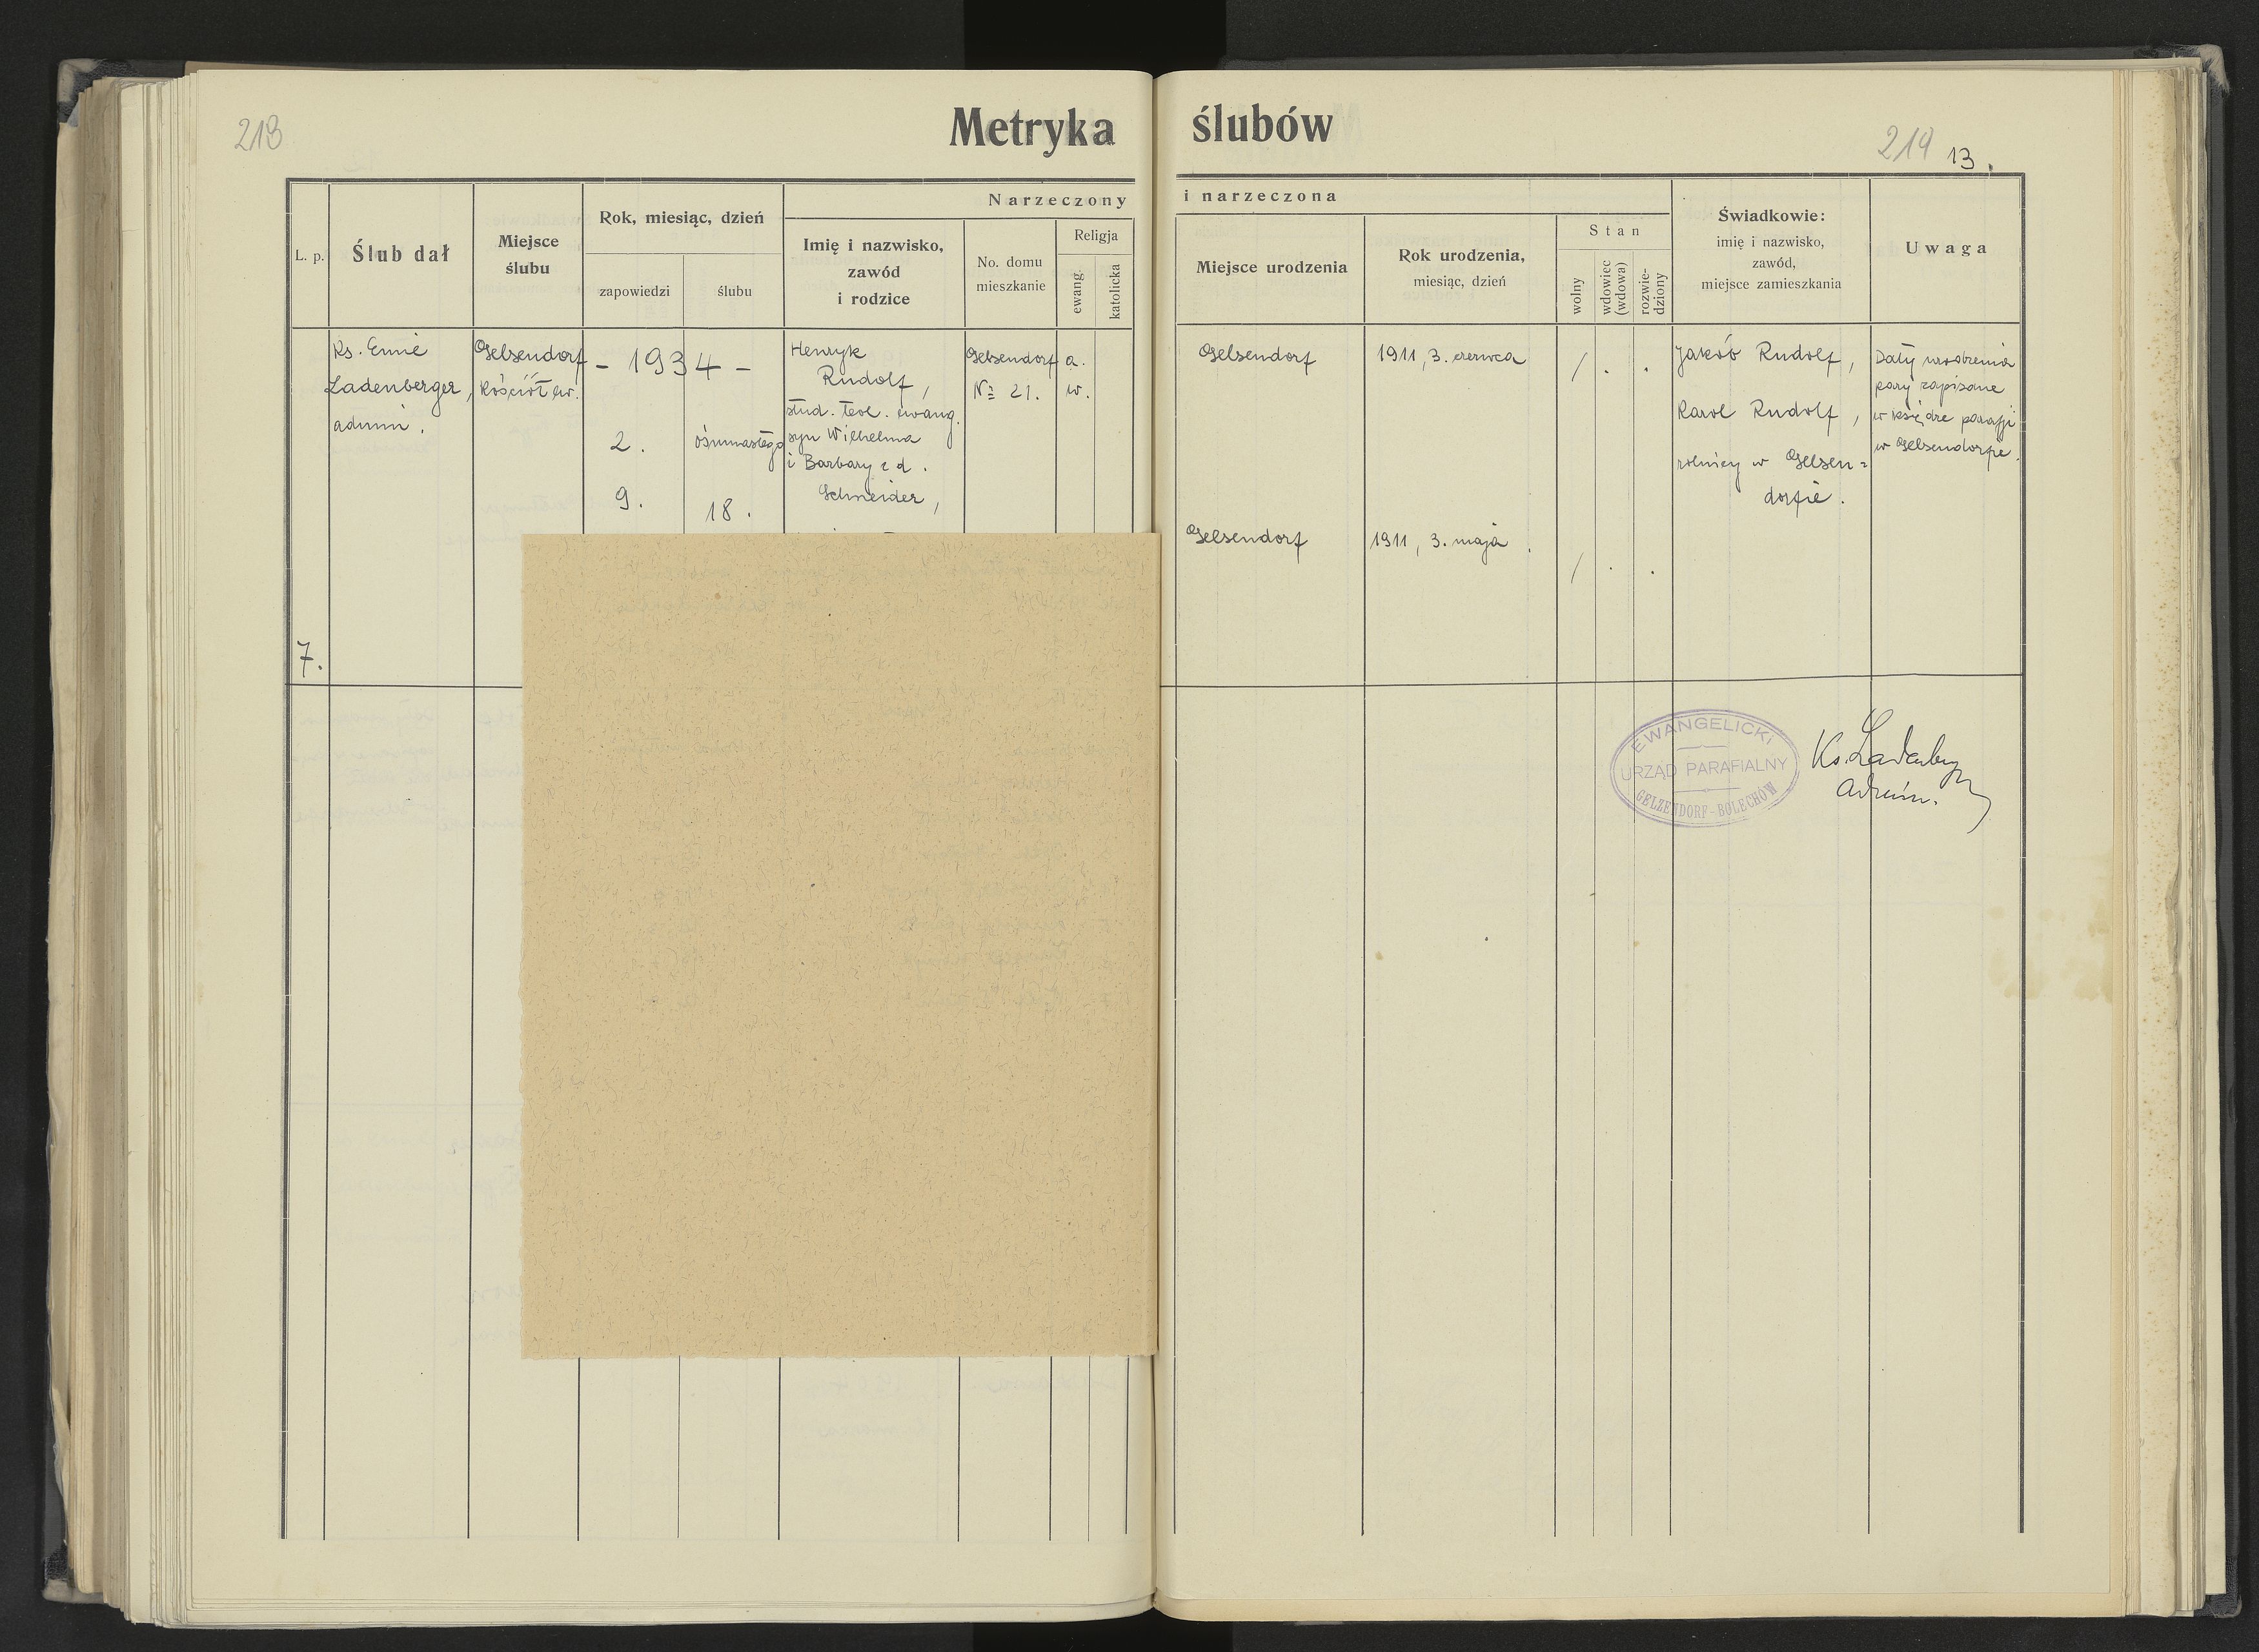 213
Metryka ślubów
219 13.
L. p.
Ślub dał
Miejsce
ślubu
Rok, miesiąc, dzień
zapowiedzi
ślubu
Narzeczony i narzeczona
Imię i nazwisko,
zawód
i rodzice
No. domu
mieszkanie
Religja
ewang.
katolicka
Miejsce urodzenia
Rok urodzenia,
miesiąc, dzień
Stan
wolny
wdowiec
(wdowa)
rozwie-
dziony
Świadkowie:
imię i nazwisko,
zawód,
miejsce zamieszkania
Uwaga
7.
Ks. Emil
Ladenberger,
admin.
Gelsendorf
kościół ew.
- 1934 -
2.
9.
ósmnastego
18.
Henryk
Rudolf,
stud. teol. ewang.
syn Wilhelma
i Barbary z d.
Schneider,
Gelsendorf
№ 21.
a.
w.
Gelsendorf
1911, 3. czerwca
/ . .
Jakób Rudolf,
Karol Rudolf,
rolnicy w Gelsen=
dorfie.
Daty urodzenia
pary zapisane
w księdze parafji
w Gelsendorfie.
Gelsendorf
1911, 3. maja.
/ . .
EWANGELICKI
URZĄD PARAFIALNY
GELZENDORF-BOLECHÓW
Ks. Ladenberger
Admin.